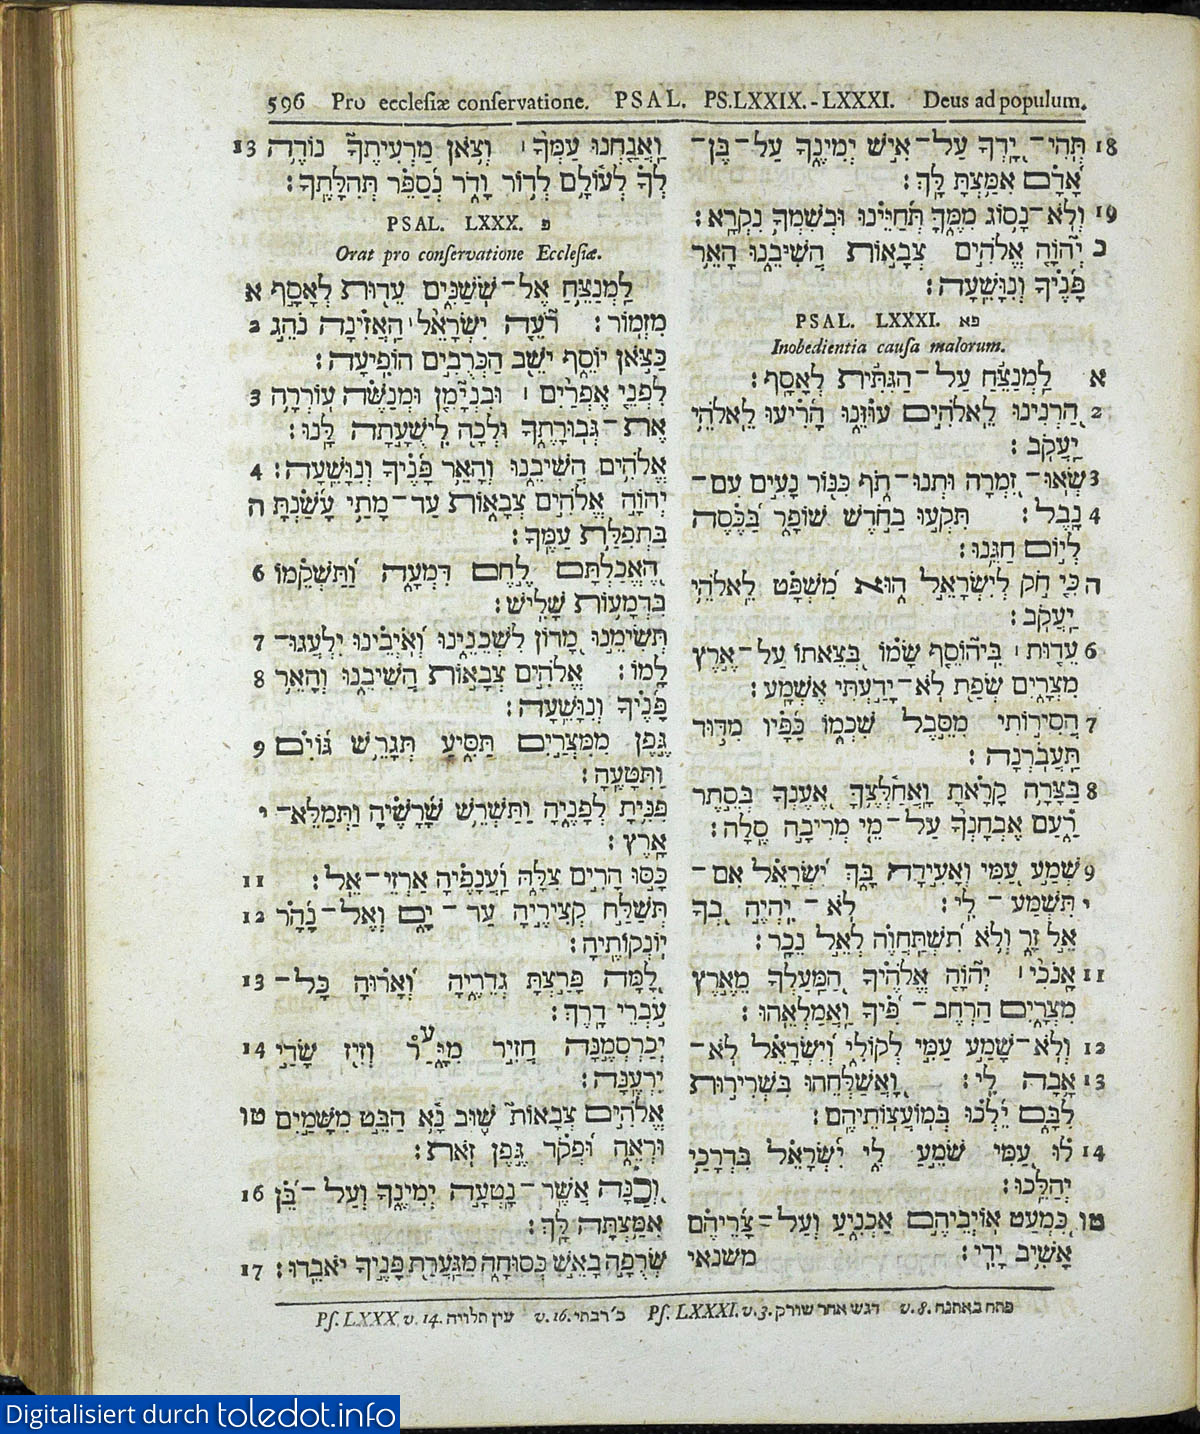 596 Pro ecclesiæ conservatione. PSAL. PS. LXXIX. - LXXXI. Deus ad populum.
וַאֲנַחְנוּ עַמְּךָ ׀ וְצֹאן מַרְעִיתֶךָ נוֹדֶה 13
לְּךָ לְעוֹלָם לְדוֹר וָדֹר נְסַפֵּר תְּהִלָּתֶךָ׃
PSAL. LXXX. פ
Orat pro conservatione Ecclesiæ.
לַמְנַצֵּחַ אֶל־שֹׁשַׁנִּים עֵדוּת לְאָסָף א
מִזְמוֹר׃ רֹעֵה יִשְׂרָאֵל ׀ הַאֲזִינָה נֹהֵג 2
כַּצֹּאן יוֹסֵף יֹשֵׁב הַכְּרֻבִים הוֹפִיעָה׃
לִפְנֵי אֶפְרַיִם ׀ וּבִנְיָמִן וּמְנַשֶּׁה עוֹרְרָה 3
אֶת־גְּבוּרָתֶךָ וּלְכָה לִישֻׁעָתָה לָּנוּ׃
אֱלֹהִים הֲשִׁיבֵנוּ וְהָאֵר פָּנֶיךָ וְנִוָּשֵׁעָה׃ 4
יְהוָֹה אֱלֹהִים צְבָאוֹת עַד־מָתַי עָשַׁנְתָּ ה
בִּתְפִלַּת עַמֶּךָ׃
הֶאֱכַלְתָּם לֶחֶם דִּמְעָה וַתַּשְׁקֵמוֹ 6
בִּדְמָעוֹת שָׁלִישׁ׃
תְּשִׂימֵנוּ מָדוֹן לִשְׁכֵנֵינוּ וְאֹיְבֵינוּ יִלְעֲגוּ־ 7
לָמוֹ׃ אֱלֹהִים צְבָאוֹת הֲשִׁיבֵנוּ וְהָאֵר 8
פָּנֶיךָ וְנִוָּשֵׁעָה׃
גֶּפֶן מִמִּצְרַיִם תַּסִּיעַ תְּגָרֵשׁ גּוֹיִם 9
וַתִּטָּעֶהָ׃
פִּנִּיתָ לְפָנֶיהָ וַתַּשְׁרֵשׁ שָׁרָשֶׁיהָ וַתְּמַלֵּא־ י
אָרֶץ׃
כָּסּוּ הָרִים צִלָּהּ וַעֲנָפֶיהָ אַרְזֵי־אֵל׃ 11
תְּשַׁלַּח קְצִירֶיהָ עַד־יָם וְאֶל־נָהָר 12
יוֹנְקוֹתֶיהָ׃
לָמָּה פָּרַצְתָּ גְדֵרֶיהָ וְאָרוּהָ כָּל־ 13
עֹבְרֵי דָרֶךְ׃
יְכַרְסְמֶנָּה חֲזִיר מִיָּעַר וְזִיז שָׂדַי 14
יִרְעֶנָּה׃
אֱלֹהִים צְבָאוֹת שׁוּב נָא הַבֵּט מִשָּׁמַיִם טו
וּרְאֵה וּפְקֹד גֶּפֶן זֹאת׃
וְכַנָּה אֲשֶׁר־נָטְעָה יְמִינֶךָ וְעַל־בֵּן 16
אִמַּצְתָּה לָּךְ׃
שְׂרֻפָה בָאֵשׁ כְּסוּחָה מִגַּעֲרַת פָּנֶיךָ יֹאבֵדוּ׃ 17
18 תְּהִי־יָדְךָ עַל־אִישׁ יְמִינֶךָ עַל־בֶּן־
אָדָם אִמַּצְתָּ לָּךְ׃
19 וְלֹא־נָסוֹג מִמֶּךָּ תְּחַיֵּינוּ וּבְשִׁמְךָ נִקְרָא׃
כ יְהוָֹה אֱלֹהִים צְבָאוֹת הֲשִׁיבֵנוּ הָאֵר
פָּנֶיךָ וְנִוָּשֵׁעָה׃
PSAL. LXXXI. פא
Inobedientia causa malorum.
א לַמְנַצֵּחַ עַל־הַגִּתִּית לְאָסָף׃
2 הַרְנִינוּ לֵאלֹהִים עוּזֵּנוּ הָרִיעוּ לֵאלֹהֵי
יַעֲקֹב׃
3 שְׂאוּ־זִמְרָה וּתְנוּ־תֹף כִּנּוֹר נָעִים עִם־
4 נָבֶל׃ תִּקְעוּ בַחֹדֶשׁ שׁוֹפָר בַּכֶּסֶה
לְיוֹם חַגֵּנוּ׃
ה כִּי חֹק לְיִשְׂרָאֵל הוּא מִשְׁפָּט לֵאלֹהֵי
יַעֲקֹב׃
6 עֵדוּת ׀ בִּיהוֹסֵף שָׂמוֹ בְּצֵאתוֹ עַל־אֶרֶץ
מִצְרָיִם שְׂפַת לֹא־יָדַעְתִּי אֶשְׁמָע׃
7 הֲסִירוֹתִי מִסֵּבֶל שִׁכְמוֹ כַּפָּיו מִדּוּד
תַּעֲבֹרְנָה׃
8 בַּצָּרָה קָרָאתָ וָאֲחַלְּצֶךָּ אֶעֶנְךָ בְּסֵתֶר
רַעַם אֶבְחָנְךָ עַל־מֵי מְרִיבָה סֶלָה׃
9 שְׁמַע עַמִּי וְאָעִידָה בָּךְ יִשְׂרָאֵל אִם־
י תִּשְׁמַע־לִי׃ לֹא־יִהְיֶה בְךָ
אֵל זָר וְלֹא תִשְׁתַּחֲוֶה לְאֵל נֵכָר׃
11 אָנֹכִי ׀ יְהוָֹה אֱלֹהֶיךָ הַמַּעַלְךָ מֵאֶרֶץ
מִצְרָיִם הַרְחֶב־פִּיךָ וַאֲמַלְאֵהוּ׃
12 וְלֹא־שָׁמַע עַמִּי לְקוֹלִי וְיִשְׂרָאֵל לֹא־
13 אָבָה לִי׃ וָאֲשַׁלְּחֵהוּ בִּשְׁרִירוּת
לִבָּם יֵלְכוּ בְּמוֹעֲצוֹתֵיהֶם׃
14 לוּ עַמִּי שֹׁמֵעַ לִי יִשְׂרָאֵל בִּדְרָכַי
יְהַלֵּכוּ׃
טו כִּמְעַט אוֹיְבֵיהֶם אַכְנִיעַ וְעַל־צָרֵיהֶם
אָשִׁיב יָדִי׃ משנאי
Ps. LXXX. v. 14. עין תלויה v. 16. כ׳ רבתי Ps. LXXXI. v. 3. דגש אחר שורק v. 8. פתח באתנח
Digitalisiert durch toledot.info